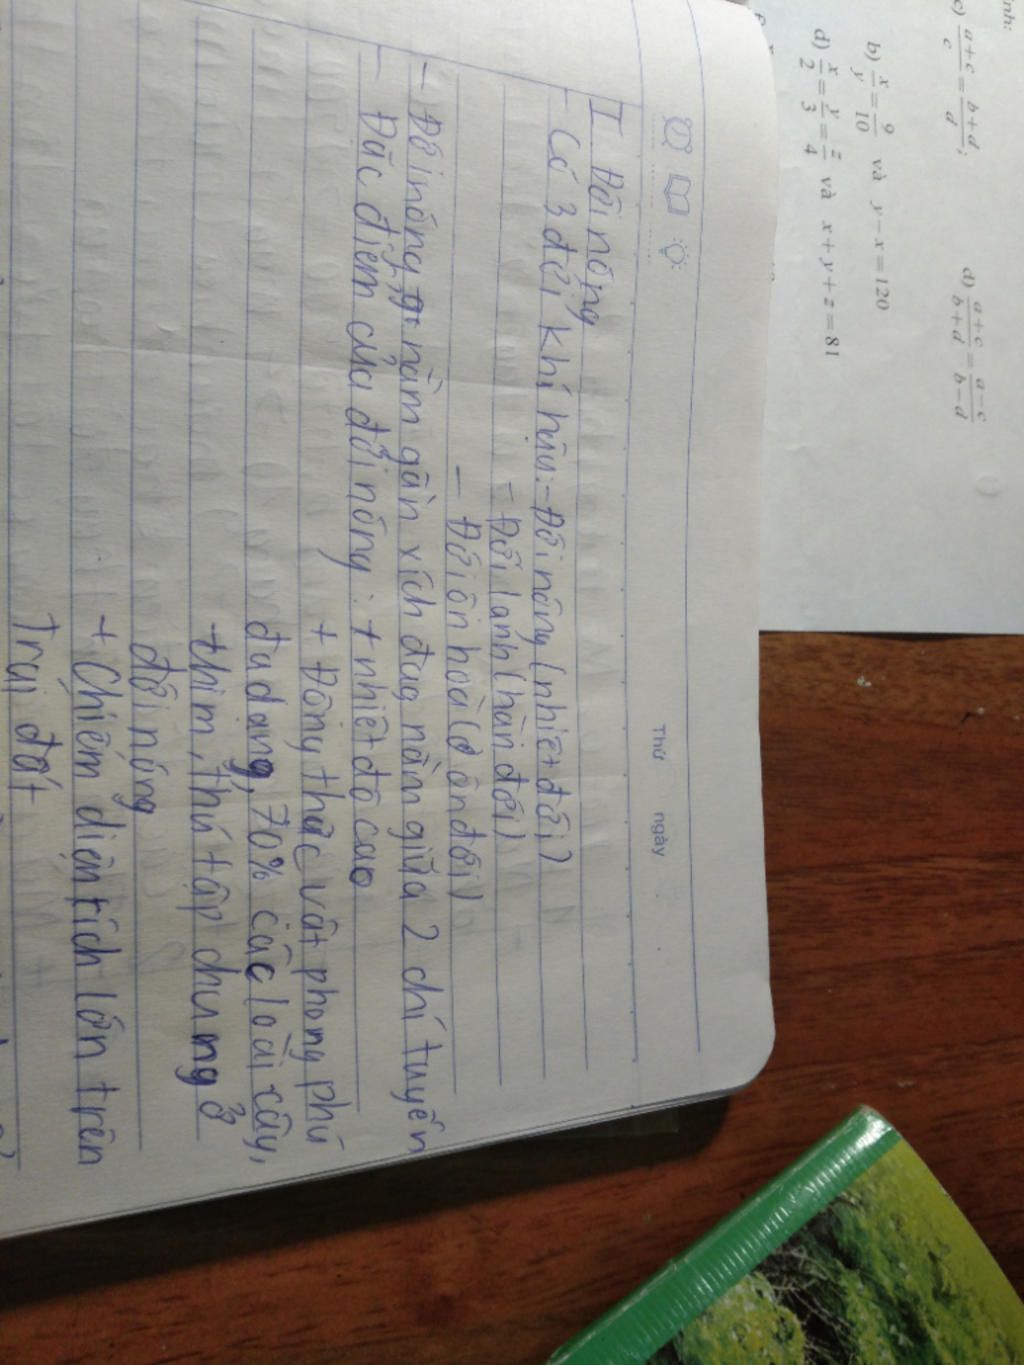 ính:
c) \frac{a+c}{c} = \frac{b+d}{d};
d) \frac{a+c}{b+d} = \frac{a-c}{b-d}
b) \frac{x}{y} = \frac{9}{10} và y - x = 120
d) \frac{x}{2} = \frac{y}{3} = \frac{z}{4} và x + y + z = 81
Thứ ngày
I Đới nóng
- Có 3 đới khí hậu: - Đới nóng (nhiệt đới)
- Đới lạnh (hàn đới)
- Đới ôn hoà (ôn đới)
- Đới nóng nằm gần xích đạo, nằm giữa 2 chí tuyến,
- Đặc điểm của đới nóng : + nhiệt độ cao
+ Động thực vật phong phú
đa dạng, 70% các loài cây,
thim, thú tập chung ở
đới nóng
+ Chiếm diện tích lớn trên
Trái đất